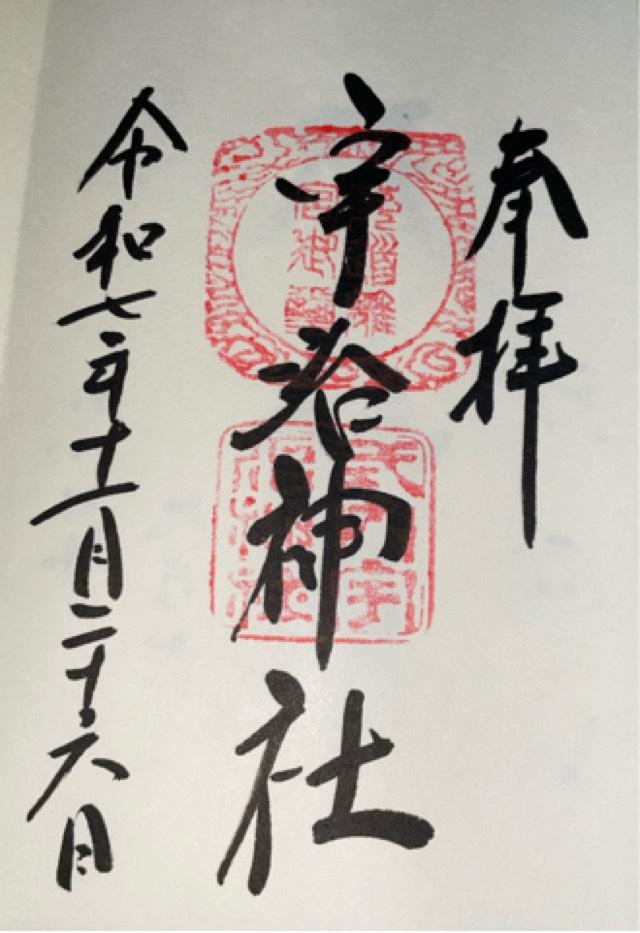 奉拝
宇治神社
令和七年十一月二十六日